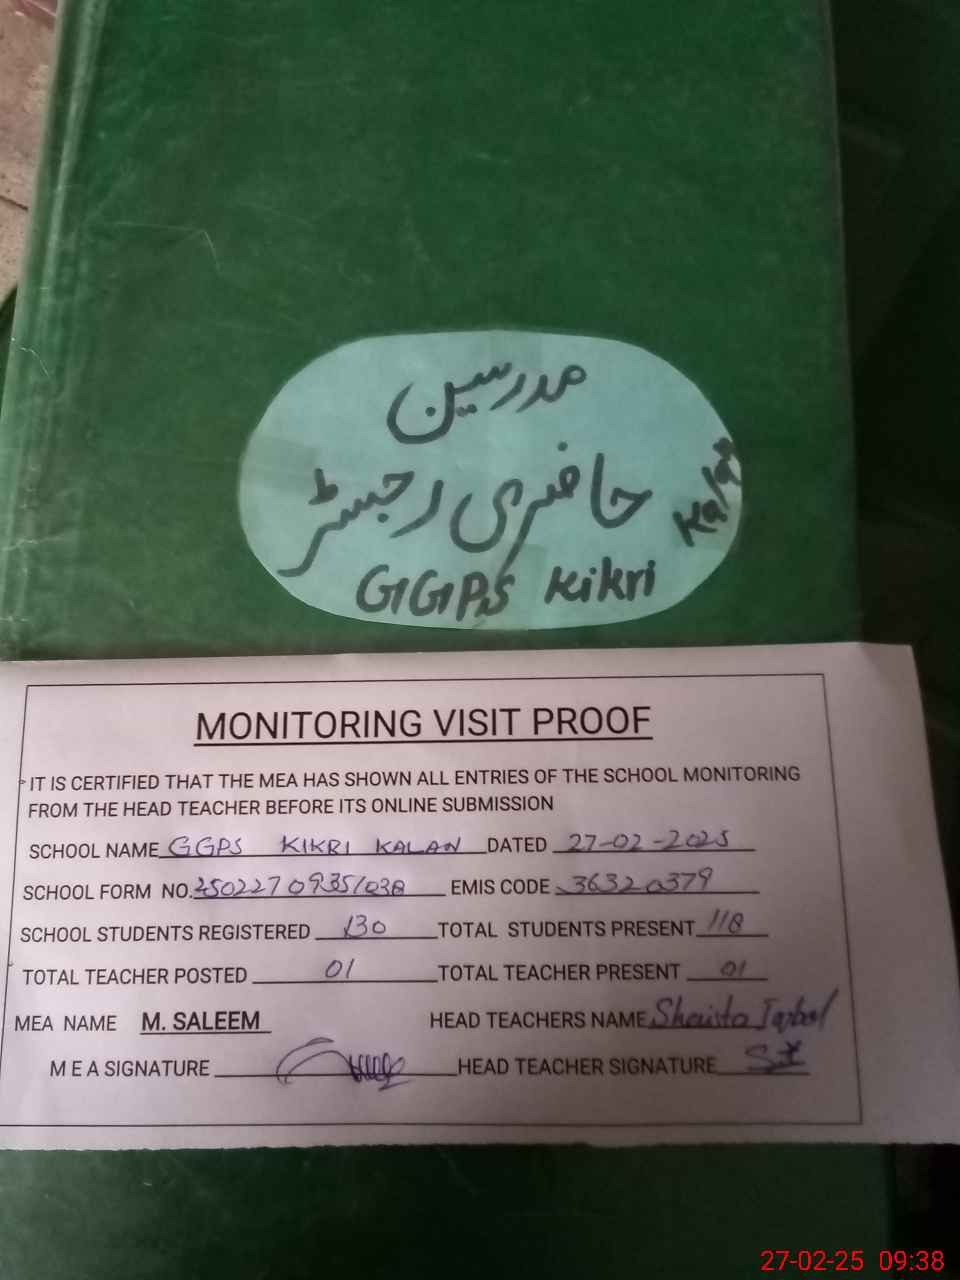 مدرسین
حاضری رجسٹر
GGPS Kikri Kalan
MONITORING VISIT PROOF
IT IS CERTIFIED THAT THE MEA HAS SHOWN ALL ENTRIES OF THE SCHOOL MONITORING
FROM THE HEAD TEACHER BEFORE ITS ONLINE SUBMISSION
SCHOOL NAME GGPS KIKRI KALAN DATED 27-02-2025
SCHOOL FORM NO. EMIS CODE 36320379
SCHOOL STUDENTS REGISTERED 130 TOTAL STUDENTS PRESENT 118
TOTAL TEACHER POSTED 01 TOTAL TEACHER PRESENT 01
MEA NAME M. SALEEM HEAD TEACHERS NAME Shaista Iqbal
M E A SIGNATURE HEAD TEACHER SIGNATURE
27-02-25 09:38